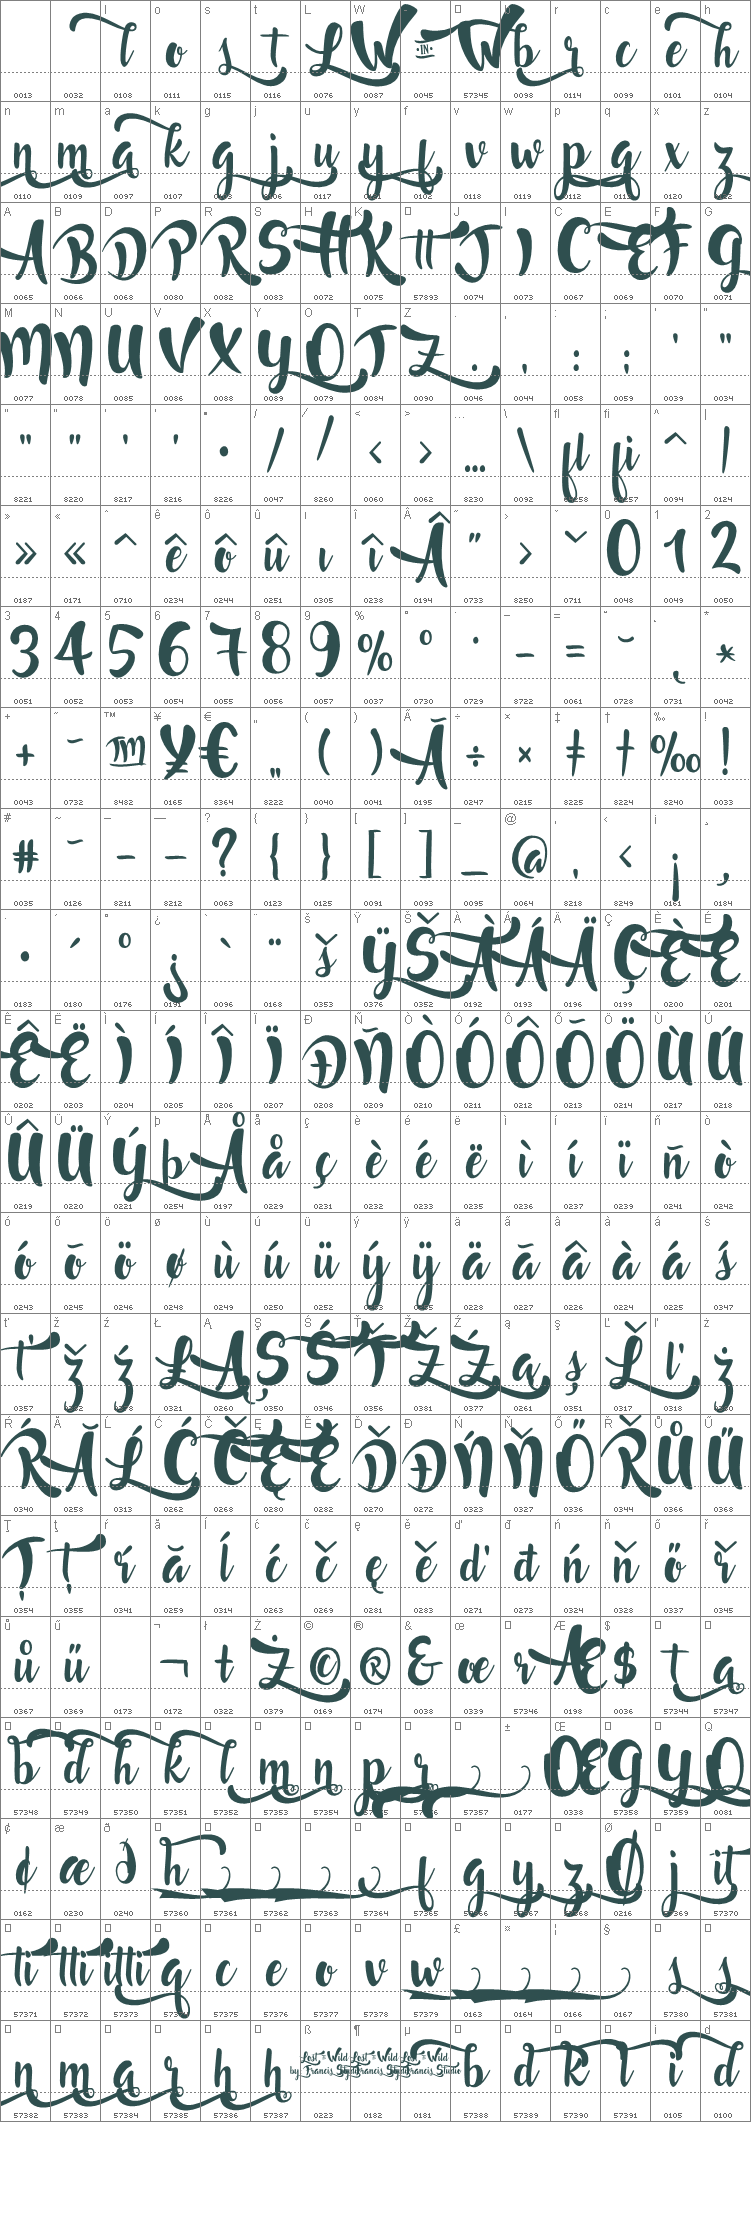 l o s t L W - b r c e h
0013 0032 0108 0111 0115 0116 0076 0087 0045 57345 0098 0114 0099 0101 0104
n m a k g j u y f v w p q x z
0110 0109 0097 0107 0103 0106 0117 0121 0102 0118 0119 0112 0113 0120 0122
A B D P R S H K J I C E F G
0065 0066 0068 0080 0082 0083 0072 0075 57893 0074 0073 0067 0069 0070 0071
M N U V X Y O T Z . , : ; ' "
0077 0078 0085 0086 0088 0089 0079 0084 0090 0046 0044 0058 0059 0039 0034
” “ ’ ‘ • / ⁄ < > … \ fl fi ^ |
8221 8220 8217 8216 8226 0047 8260 0060 0062 8230 0092 64258 64257 0094 0124
» « ˆ ê ô û ı î Â ˝ › ˇ 0 1 2
0187 0171 0710 0234 0244 0251 0305 0238 0194 0733 8250 0711 0048 0049 0050
3 4 5 6 7 8 9 % ˚ ˙ − = ˘ ˛ *
0051 0052 0053 0054 0055 0056 0057 0037 0730 0729 8722 0061 0728 0731 0042
+ ˜ ™ ¥ € „ ( ) Ã ÷ × ‡ † ‰ !
0043 0732 8482 0165 8364 8222 0040 0041 0195 0247 0215 8225 8224 8240 0033
# ~ – — ? { } [ ] _ @ ‚ ‹ ¡ ¸
0035 0126 8211 8212 0063 0123 0125 0091 0093 0095 0064 8218 8249 0161 0184
· ´ ° ¿ ` ¨ š Ÿ Š À Á Ä Ç È É
0183 0180 0176 0191 0096 0168 0353 0376 0352 0192 0193 0196 0199 0200 0201
Ê Ë Ì Í Î Ï Ð Ñ Ò Ó Ô Õ Ö Ù Ú
0202 0203 0204 0205 0206 0207 0208 0209 0210 0211 0212 0213 0214 0217 0218
Û Ü Ý þ Å å ç è é ë ì í ï ñ ò
0219 0220 0221 0254 0197 0229 0231 0232 0233 0235 0236 0237 0239 0241 0242
ó õ ö ø ù ú ü ý ÿ ä ã â à á ś
0243 0245 0246 0248 0249 0250 0252 0253 0255 0228 0227 0226 0224 0225 0347
ť ž ź Ł Ą Ş Ś Ť Ž Ź ą ş Ľ ľ ż
0357 0382 0378 0321 0260 0350 0346 0356 0381 0377 0261 0351 0317 0318 0380
Ŕ Ă Ĺ Ć Č Ę Ě Ď Đ Ń Ň Ő Ř Ů Ű
0340 0258 0313 0262 0268 0280 0282 0270 0272 0323 0327 0336 0344 0366 0368
Ţ ţ ŕ ă ĺ ć č ę ě ď đ ń ň ő ř
0354 0355 0341 0259 0314 0263 0269 0281 0283 0271 0273 0324 0328 0337 0345
ů ű ¬ ł Ż © ® & œ Æ $
0367 0369 0173 0172 0322 0379 0169 0174 0038 0339 57346 0198 0036 57344 57347
± Œ Q
57348 57349 57350 57351 57352 57353 57354 57355 57356 57357 0177 0338 57358 57359 0081
¢ æ ð Ø
0162 0230 0240 57360 57361 57362 57363 57364 57365 57366 57367 57368 0216 57369 57370
£ ¤ ¦ §
57371 57372 57373 57374 57375 57376 57377 57378 57379 0163 0164 0166 0167 57380 57381
ß ¶ µ i d
Lost in Wild Lost in Wild Lost in Wild
by Francis Studio
57382 57383 57384 57385 57386 57387 0223 0182 0181 57388 57389 57390 57391 0105 0100